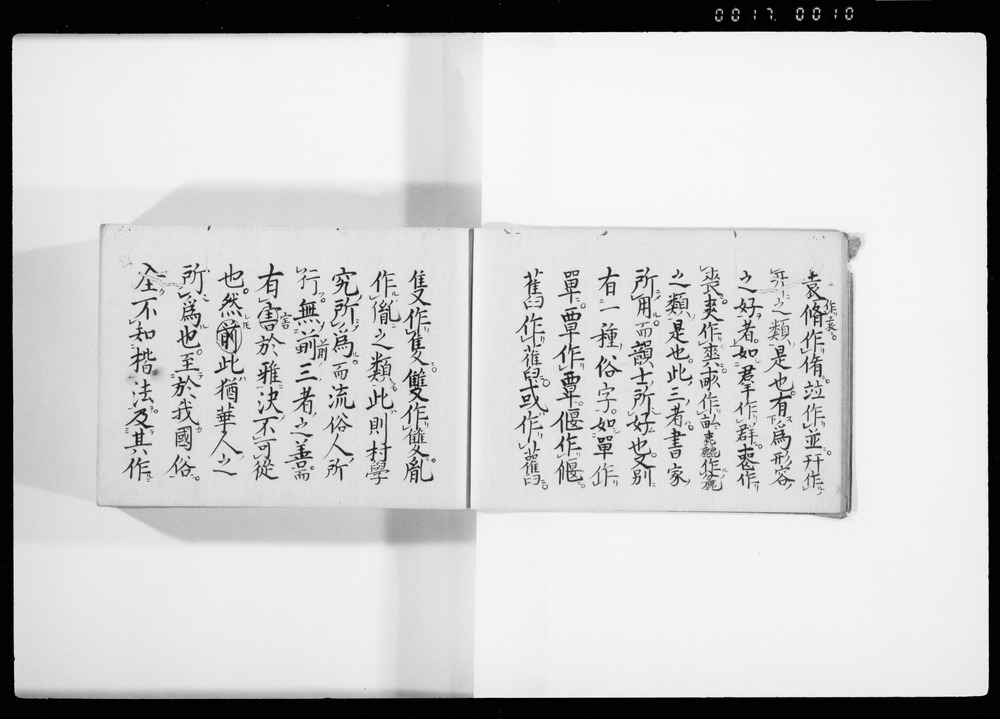 0017 0010
袁作袁脩作脩竝作並幵作
幵之類是也有下爲形容
之好者如羣作群裵作
作爽畝作
之類是也此三者書家
所用而韻士所好也又別
有一種俗字如單作
單覃作覃偃作偃
舊作舊或作舊
隻作隻雙作雙胤
作胤之類此則村學
究所爲而流俗人所
行無前三者之善而
有害於雅決不可從
也然前此猶華人之
所爲也至於我國俗
全不知楷法及其作